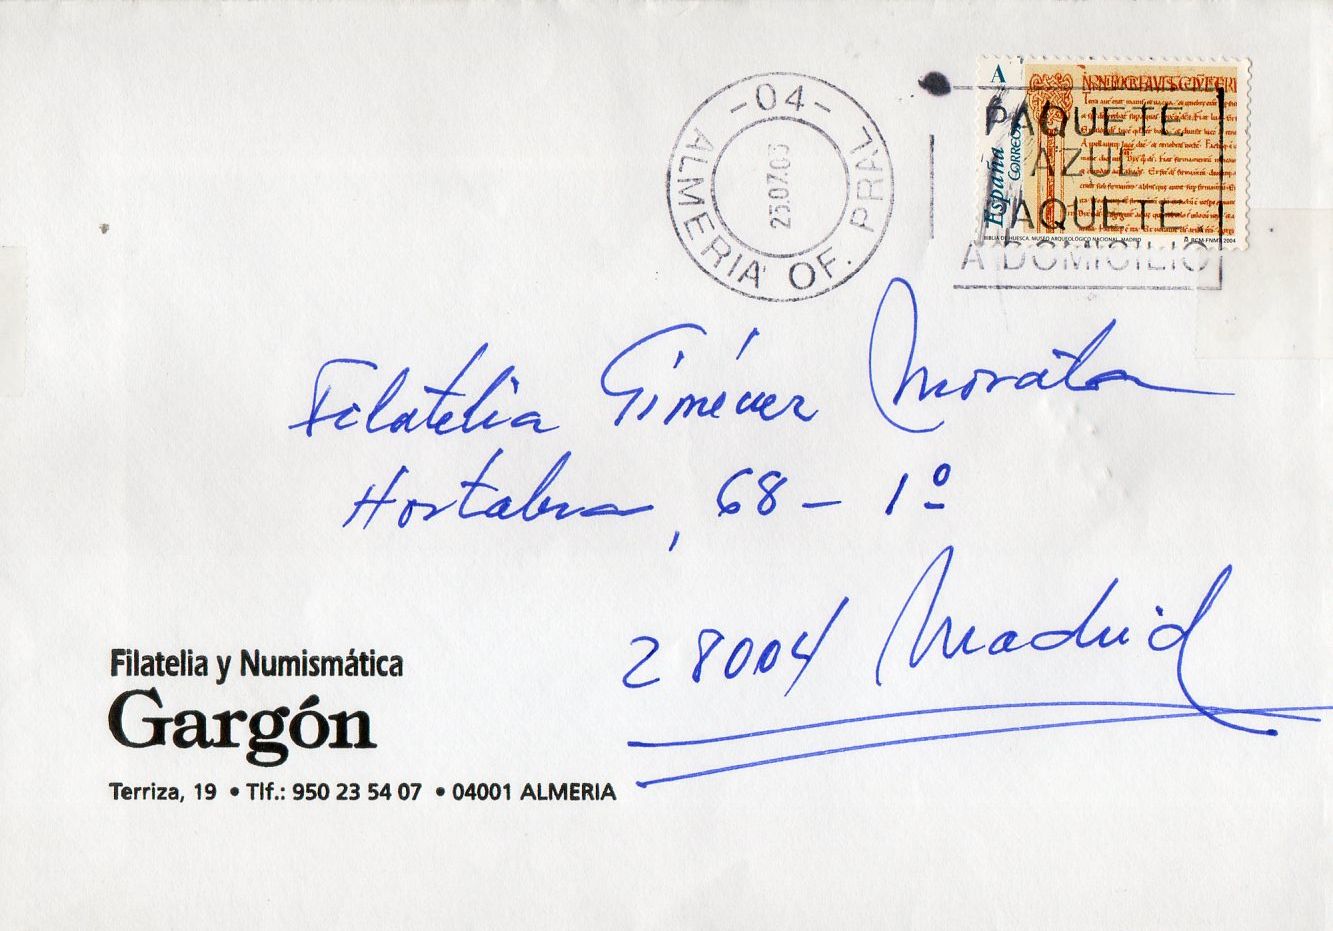 -04-
ALMERIA OF. PRAL
A
España
CORREOS
BIBLIA DE HUESCA. MUSEO ARQUEOLÓGICO NACIONAL. MADRID
RCM-FNMT 2004
PAQUETE
AZUL
PAQUETE
A DOMICILIO
Filatelia Giménez Morata
Hortaleza, 68 - 1º
28004 Madrid
Filatelia y Numismática
Gargón
Terriza, 19 • Tlf.: 950 23 54 07 • 04001 ALMERIA